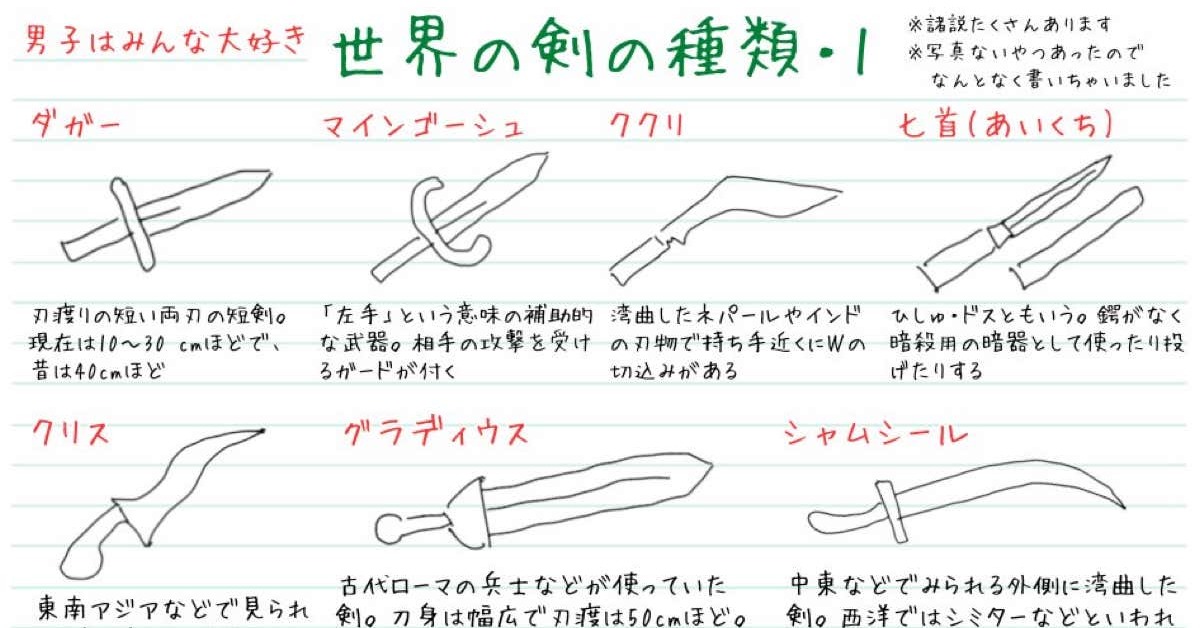 男子はみんな大好き
世界の剣の種類・1
※諸説たくさんあります
※写真ないやつあったので
なんとなく書いちゃいました
ダガー
刃渡りの短い両刃の短剣。
現在は10～30 cmほどで、
昔は40cmほど
マインゴーシュ
「左手」という意味の補助的
な武器。相手の攻撃を受け
るガードが付く
ククリ
湾曲したネパールやインド
の刃物で持ち手近くにWの
切込みがある
匕首(あいくち)
ひしゅ・ドスともいう。鍔がなく
暗殺用の暗器として使ったり投
げたりする
クリス
東南アジアなどで見られ
グラディウス
古代ローマの兵士などが使っていた
剣。刀身は幅広で刃渡は50cmほど。
シャムシール
中東などでみられる外側に湾曲した
剣。西洋ではシミターなどといわれ